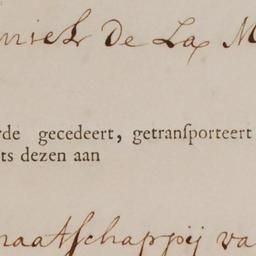 niel De La M
rde gecedeert, getranſporteert
ts dezen aan
naatſchappij va